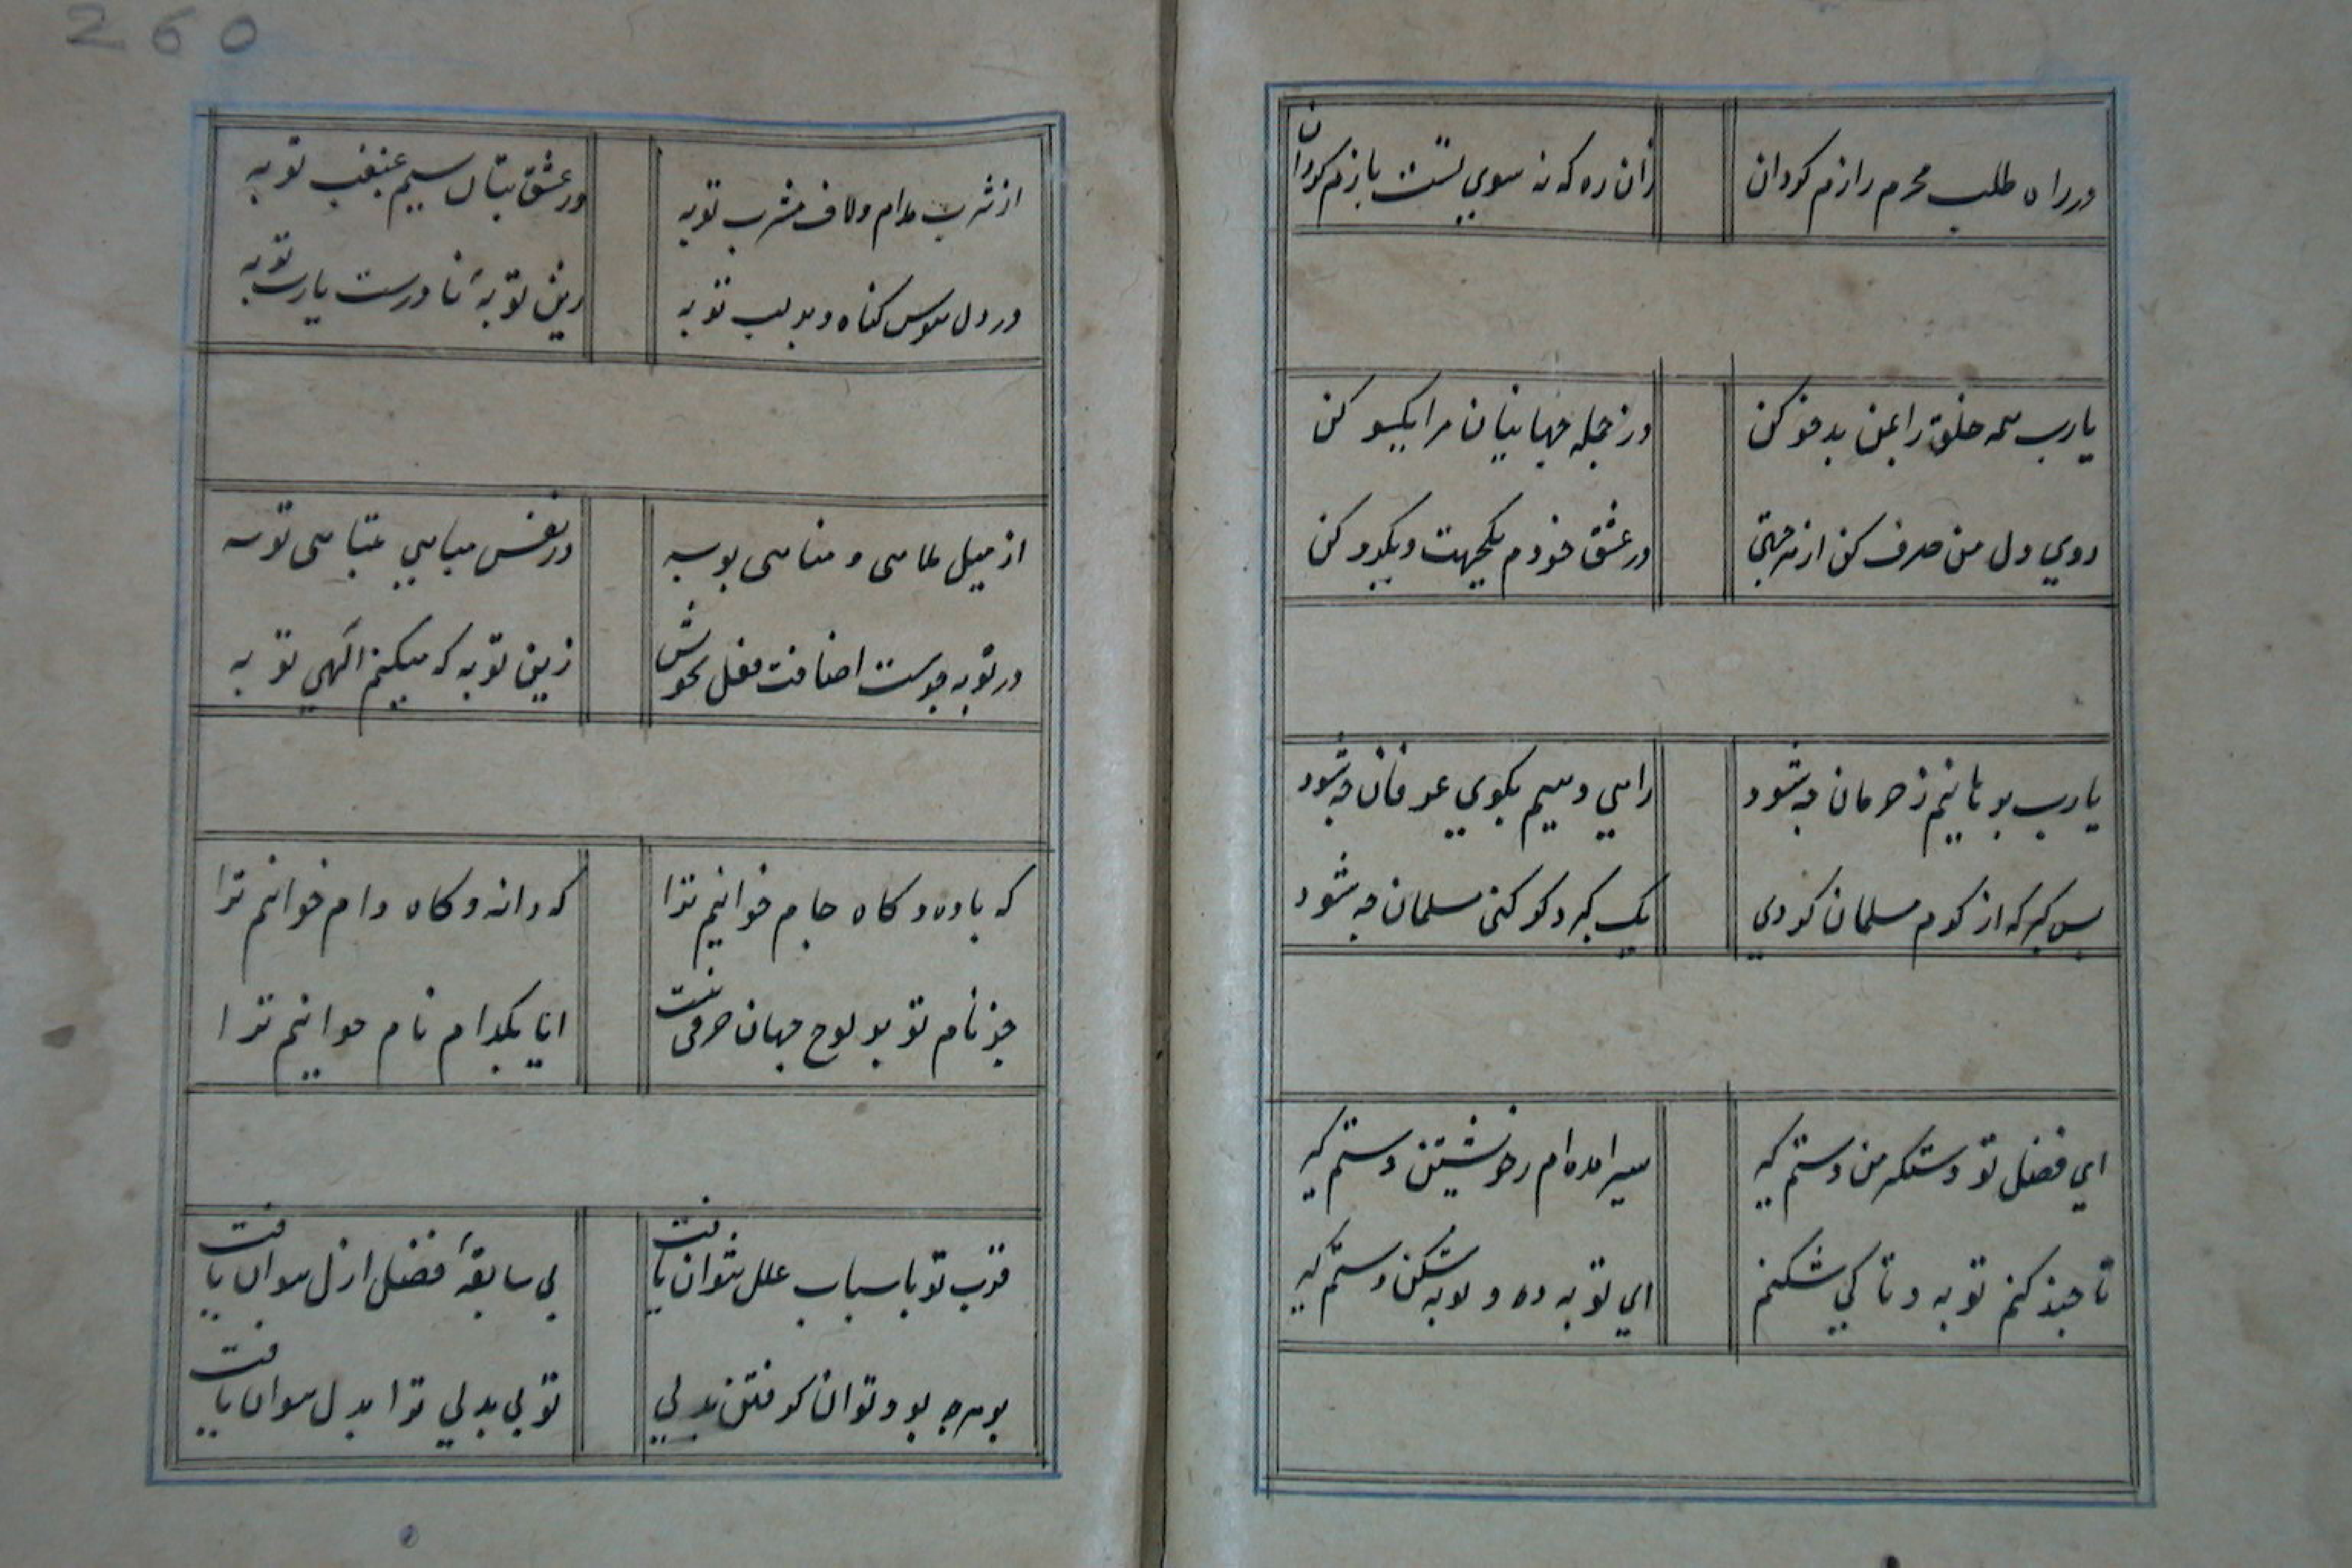 در راه طلب محرم رازم گردان
زان ره که نه سوی تست بازم گردان
یارب همه خلق را بمن بدخو کن
وز جمله جهانیان مرا یکسو کن
روی دل من صرف کن از هر جهتی
در عشق خودم یکجهت و یکرو کن
یارب برهانیم ز حرمان چه شود
راهی دهیم بکوی عرفان چه شود
بس گبر که از کرم مسلمان کردی
یک گبر دگر کنی مسلمان چه شود
ای فضل تو دستگیر من دستم گیر
سیر آمده ام ز خویشتن دستم گیر
تا چند کنم توبه و تا کی شکنم
ای توبه ده و توبه شکن دستم گیر
260
از شرب مدام و لاف مشرب توبه
در عشق بتان سیم غبغب توبه
در دل هوس گناه و بر لب توبه
زین توبهٔ نادرست یارب توبه
از میل ملاهی و مناهی توبه
در توبه چو هست اضافت فعل بخویش
زین توبه که میکنم الهی توبه
گه باده و گاه جام خوانیم ترا
گه دانه و گاه دام خوانیم ترا
جز نام تو بر لوح جهان حرفی نیست
آیا بکدام نام خوانیم ترا
قرب تو باسباب علل نتوان یافت
بی سابقهٔ فضل ازل نتوان یافت
بر هرچه بود توان گرفتن بدلی
تو بی بدلی ترا بدل نتوان یافت